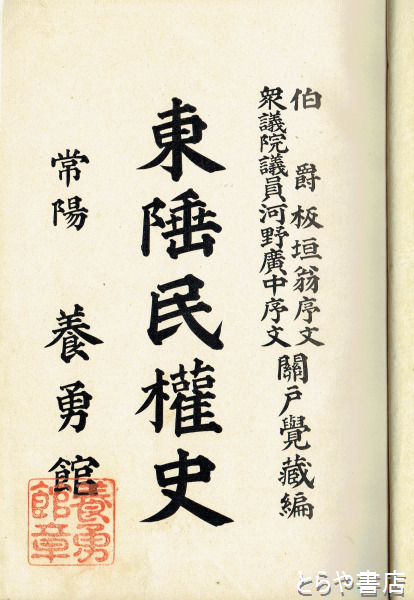 伯爵板垣翁序文
衆議院議員河野廣中序文
關戶覺藏編
東陲民權史
常陽 養勇館
養勇館章
とらや書店